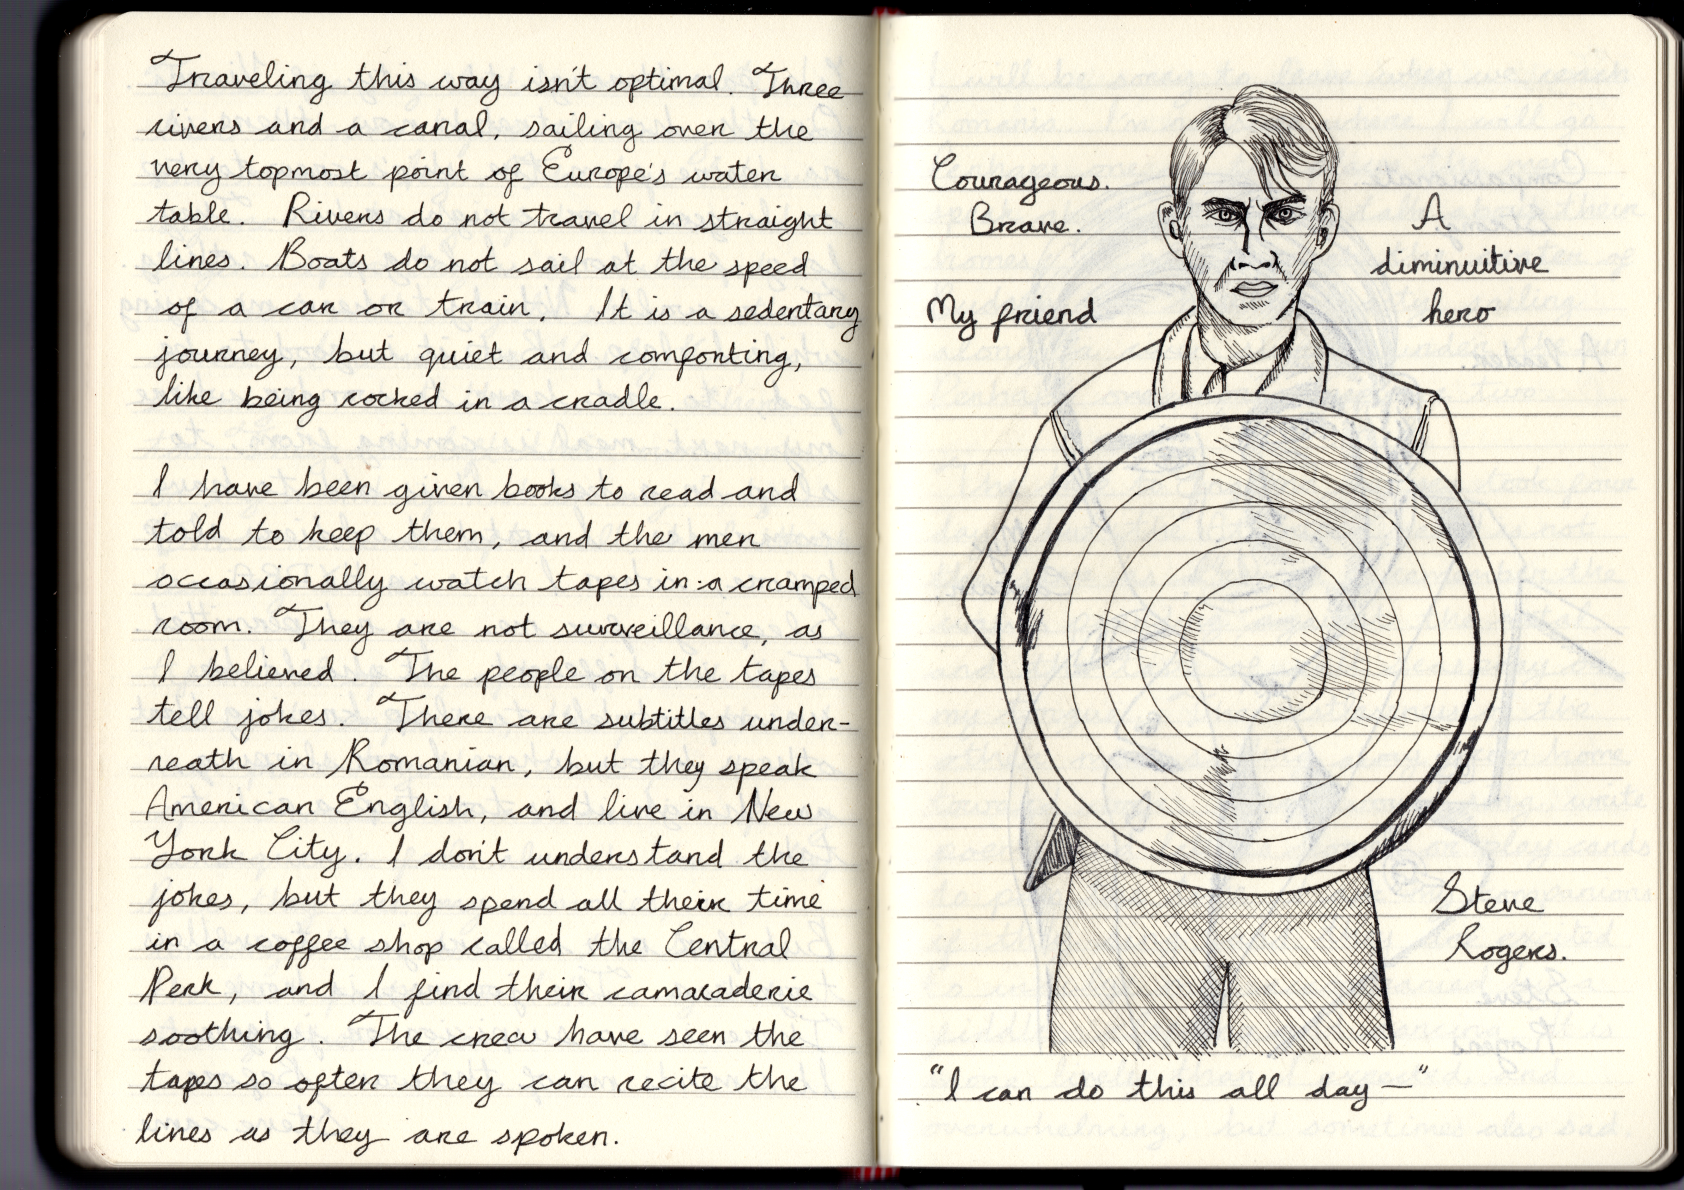 Traveling this way isn't optimal. Three
rivers and a canal, sailing over the
very topmost point of Europe's water
table. Rivers do not travel in straight
lines. Boats do not sail at the speed
of a car or train. It is a sedentary
journey, but quiet and comforting,
like being rocked in a cradle.
I have been given books to read and
told to keep them, and the men
occasionally watch tapes in a cramped
room. They are not surveillance, as
I believed. The people on the tapes
tell jokes. There are subtitles under-
neath in Romanian, but they speak
American English, and live in New
York City. I don't understand the
jokes, but they spend all their time
in a coffee shop called the Central
Perk, and I find their camaraderie
soothing. The crew have seen the
tapes so often they can recite the
lines as they are spoken.
Courageous.
Brave.
My friend
A
diminuitive
hero
Steve
Rogers.
"I can do this all day—"